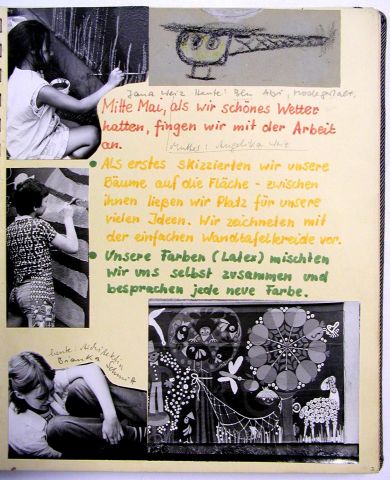 Jana Weiz heute: Ben Abi,
Mitte Mai, als wir schönes Wetter
hatten, fingen wir mit der Arbeit
an.
Mutter: Angelika
• Als erstes skizzierten wir unsere
Bäume auf die Fläche - zwischen
ihnen ließen wir Platz für unsere
vielen Ideen. Wir zeichneten mit
der einfachen Wandtafelkreide vor.
• Unsere Farben (Latex) mischten
wir uns selbst zusammen und
besprachen jede neue Farbe.
heute: Architektin
Bianka Schmidt